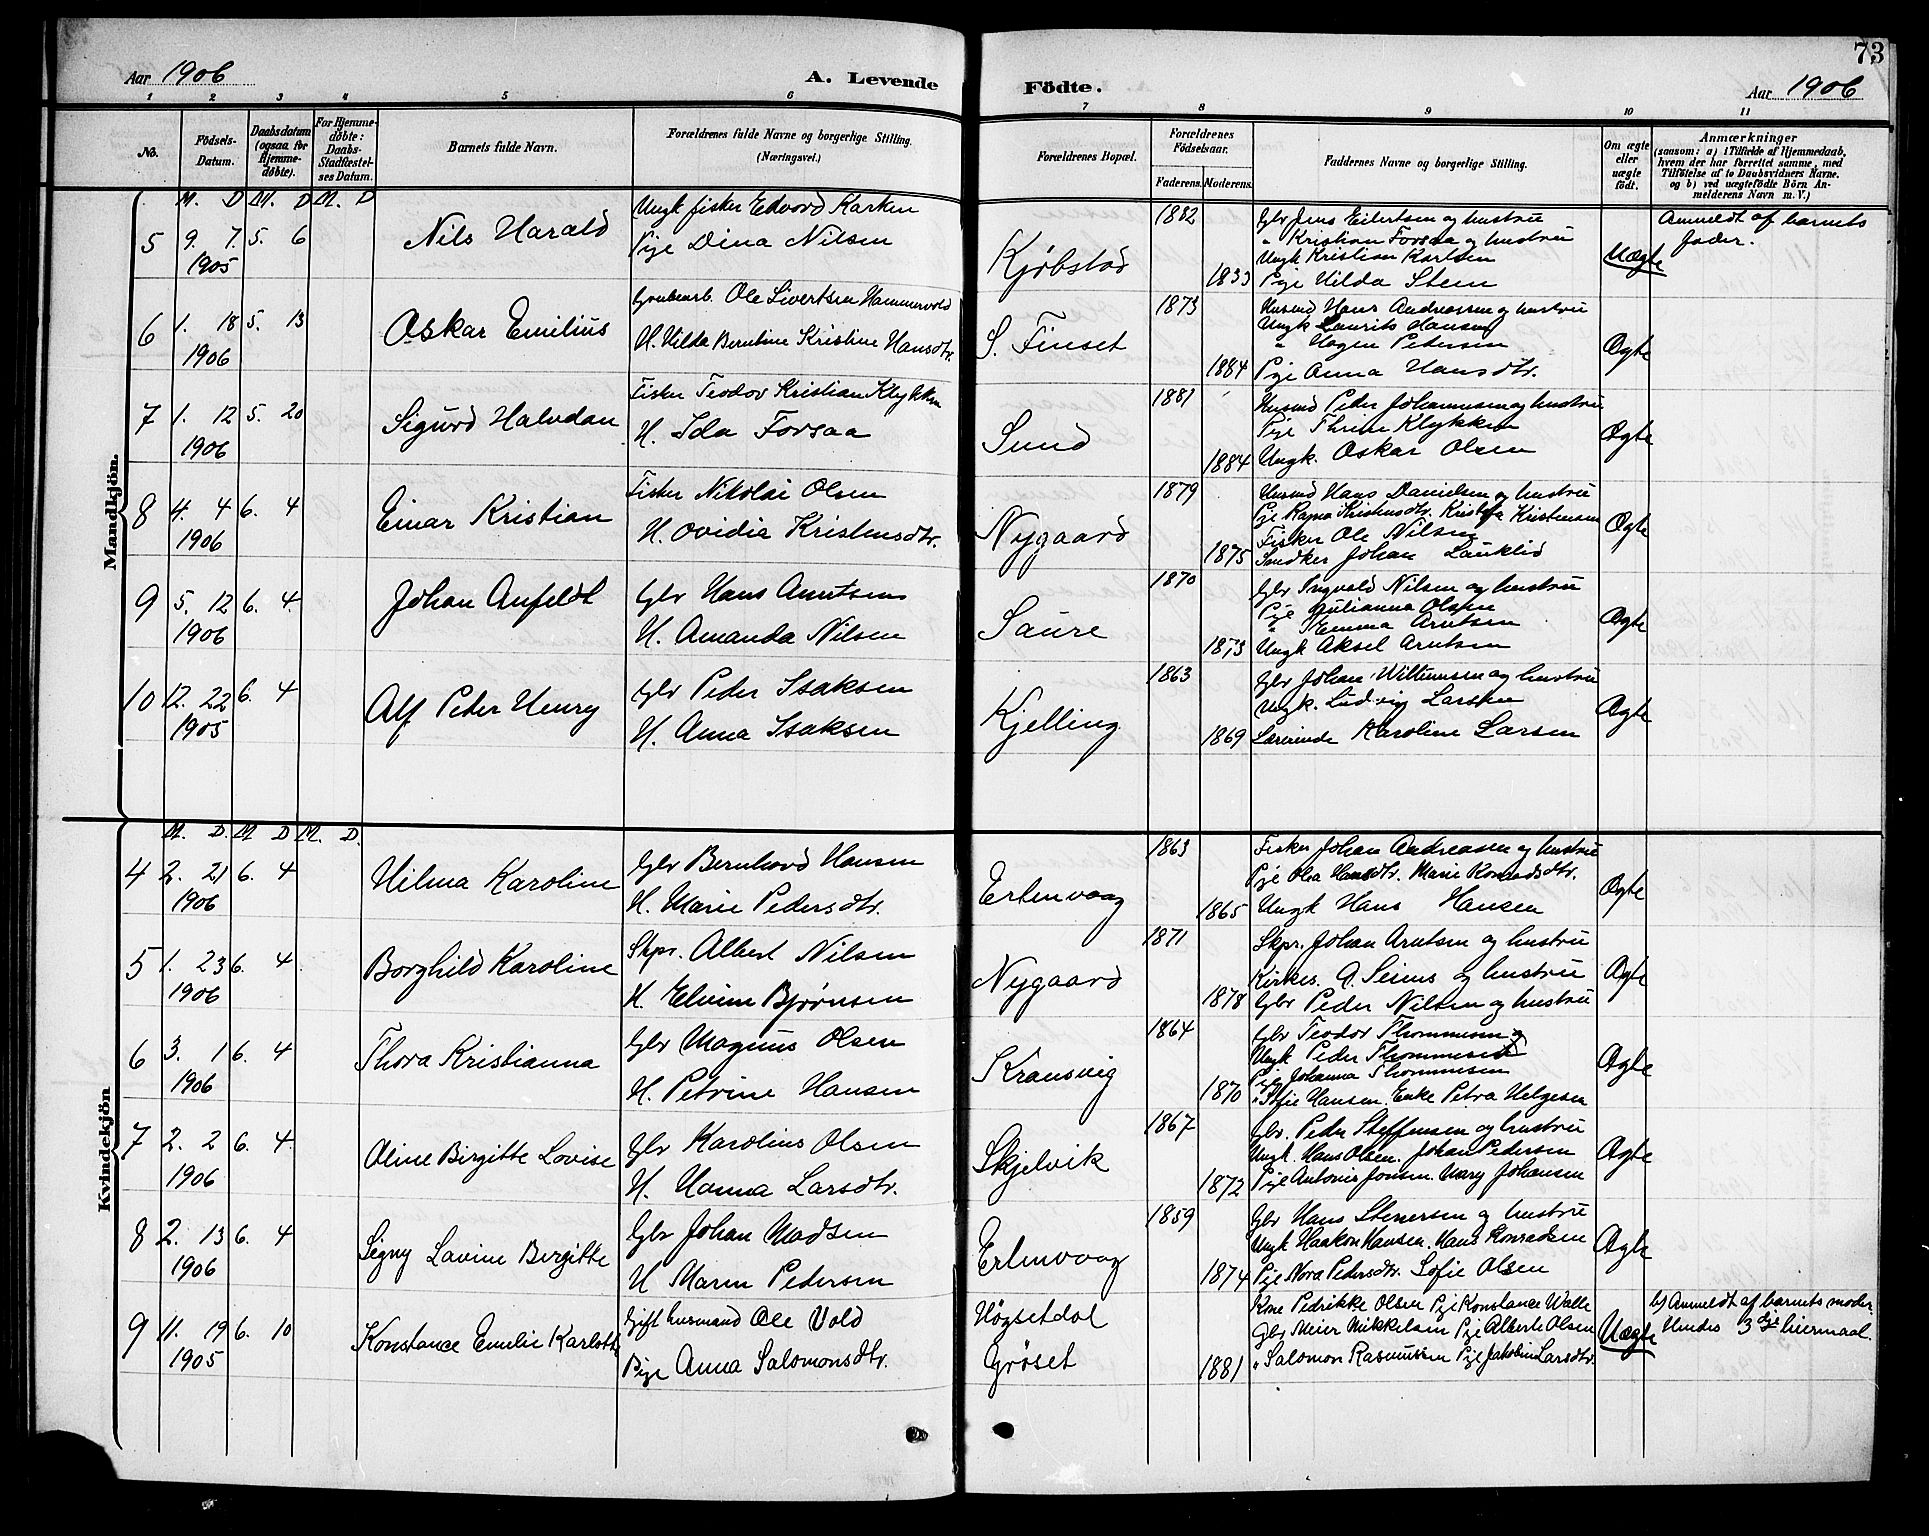 73
Aar 1906
A. Levende
Födte.
Aar 1906
1 2 3 4 5 6 7 8 9 10 11
No.
Födsels-Datum.
Daabsdatum (ogsaa for Hjemmedøbte).
For Hjemmedøbte: Daabs-Stadfæstelses Datum.
Barnets fulde Navn.
Forældrenes fulde Navne og borgerlige Stilling. (Næringsvei.)
Forældrenes Bopæl.
Forældrenes Födselsaar.
Faderens. Moderens.
Faddernes Navne og borgerlige Stilling.
Om ægte eller uægte födt.
Anmærkninger
(saasom: a) i Tilfælde af Hjemmedaab, hvem der har forrettet samme, med Tilføielse af to Daabsvidners Navne, og b) ved uægtefödte Börn Anmelderens Navn m. V.)
Mandkjön.
M. D M. D M. D
5 9. 7. 5. 6 Nils Harald Ungk fisker Edvard Karken Kjøbstad 1882 Gbr Jens Eilertsen og hustru Anmeldt af barnets
1905 Pige Dina Nilsen " Kristian Forsaa og hustru Uægte fader.
Ungk Kristian Karlsen
1833 Pige Hilda Steen
6 1. 18 5. 13 Oskar Emilius Ole Sivertsen Hammervold S. Finset 1873 Husmd Hans Andreassen og hustru
1906 H. Hilda Berntine Kristine Hansdtr. Ungk Laurits Hansen Ægte
" Hagen Petersen
1884 Pige Anna Hansdtr.
7 1. 12 5. 20 Sigurd Halvdan Fisker Teodor Kristian Klykken Sund 1881 Husmd Peder Johannesen og hustru
1906 H. Ida Forsaa Pige Thrine Klykken Ægte
1884 Ungk. Oskar Olsen
8 4. 4 6. 4 Einar Kristian Fisker Nikolai Olsen Nygaard 1879 Husmd Hans Danielsen og hustru
1906 H. Ovidia Kristensdtr. Pige Ragna Kristensdtr. Kristofa Kristensen Ægte
Fisker Ole Nilsen
1875 Johan Lauklid
9 5. 12 6. 4. Johan Anfeldt Gbr Hans Arntsen Saure 1870 Gbr Ingvald Nilsen og hustru
1906 H. Amanda Nilsen Pige Julianna Olsen Ægte
" Emma Arntsen
1873 Ungk Aksel Arntsen
10 12. 22 6. 4 Alf Peter Henry Gbr Peder Isaksen Kjelling 1863 Gbr Johan Willumsen og hustru
1905 H. Anna Isaksen Ungk. Ludvig Larsen Ægte
1869 Lærerinde Karoline Larsen
Kvindekjön
M. D. M D M. D.
4 2. 21 6. 4 Hilma Karoline Gbr Bernhard Hansen Ertenvaag 1863 Fisker Johan Andreassen og hustru
1906 H. Marie Pedersdtr. Pige Olea Hansdtr. Marie Konradsdtr. Ægte
1865 Ungk Hans Hansen
5 1. 23 6. 4 Borghild Karoline Skpr. Albert Nilsen Nygaard 1871 Skpr. Johan Arntsen og hustru
1906 H. Elvine Bjørnsen Kirkes. A. Seines og hustru Ægte
1878 Gbr Peder Nilsen og hustru
6 3. 1 6. 4 Thora Kristianna Gbr Magnus Olsen Kransvig 1864 Gbr Teodor Thommesen og
1906 H. Petrine Hansen Ungk Peder Thommesen Ægte
Pige Johanna Thommesen
1870 " Sofie Hansen. Enke Petra Helgesen
7 2. 2 6. 4. Aline Birgitte Lovise Gbr Karolius Olsen Skjelvik 1867 Gbr. Peder Steffensen og hustru
1906 H. Hanna Larsdtr. Ungk. Hans Olsen. Johan Pedersen Ægte
1872 Pige Antonie Jonsen. Mary Johansen
8 2. 13 6. 4 Signy Lavine Birgitte Gbr Johan Madsen Ertenvaag 1859 Gbr Hans Stenersen og hustru
1906 H Maren Pedersen Ungk Haakon Hansen. Hans Konradsen Ægte
1874 Pige Nora Pedersdtr. Sofie Olsen
9 11. 19 6. 10 Konstance Emelie Karlotte Gift husmand Ole Vold Høgsetdal Kone Pedrikke Olsen Pige Konstance Walle b) Anmeldt af barnets moder.
1905 Pige Anna Salomonsdtr. Grøset Gbr Meier Mikkelsen Pige Alberte Olsen Uægte Hendes 3die leiermaal.
1881 " Salomon Rasmussen Pige Jakobine Larsdtr.